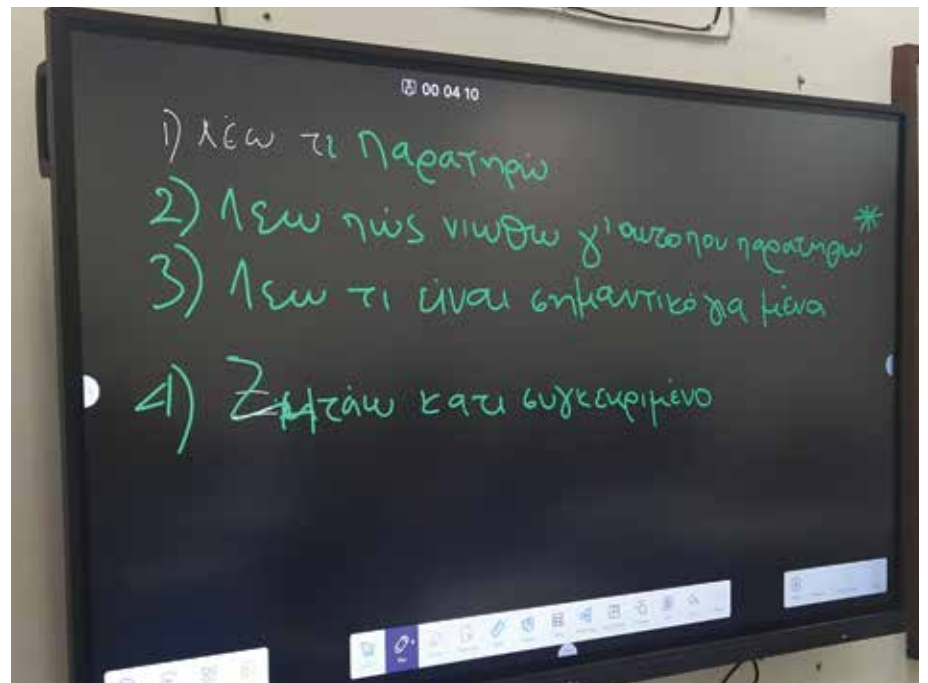 00 04 10
1) Λέω τι Παρατηρώ
2) Λεω πώς νιωθω γι'αυτο που παρατηρω *
3) Λεω τι είναι σημαντικό για μένα
4) Ζητάω κατι συγκεκριμένο